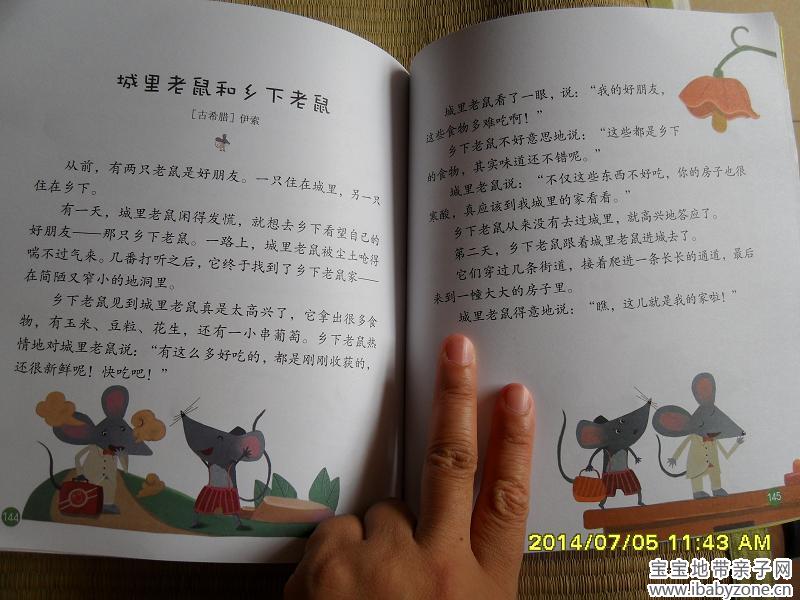 城里老鼠和乡下老鼠
[古希腊] 伊索
从前，有两只老鼠是好朋友。一只住在城里，另一只
住在乡下。
有一天，城里老鼠闲得发慌，就想去乡下看望自己的
好朋友——那只乡下老鼠。一路上，城里老鼠被尘土呛得
喘不过气来。几番打听之后，它终于找到了乡下老鼠家——
在简陋又窄小的地洞里。
乡下老鼠见到城里老鼠真是太高兴了，它拿出很多食
物，有玉米、豆粒、花生，还有一小串葡萄。乡下老鼠热
情地对城里老鼠说：“有这么多好吃的，都是刚刚收获的，
还很新鲜呢！快吃吧！”
144
城里老鼠看了一眼，说：“我的好朋友，
这些食物多难吃啊！”
乡下老鼠不好意思地说：“这些都是乡下
的食物，其实味道还不错呢。”
城里老鼠说：“不仅这些东西不好吃，你的房子也很
寒酸，真应该到我城里的家看看。”
乡下老鼠从来没有去过城里，就高兴地答应了。
第二天，乡下老鼠跟着城里老鼠进城去了。
它们穿过几条街道，接着爬进一条长长的通道，最后
来到一幢大大的房子里。
城里老鼠得意地说：“瞧，这儿就是我的家啦！”
145
2014/07/05 11:43 AM
宝宝地带亲子网
www.ibabyzone.cn